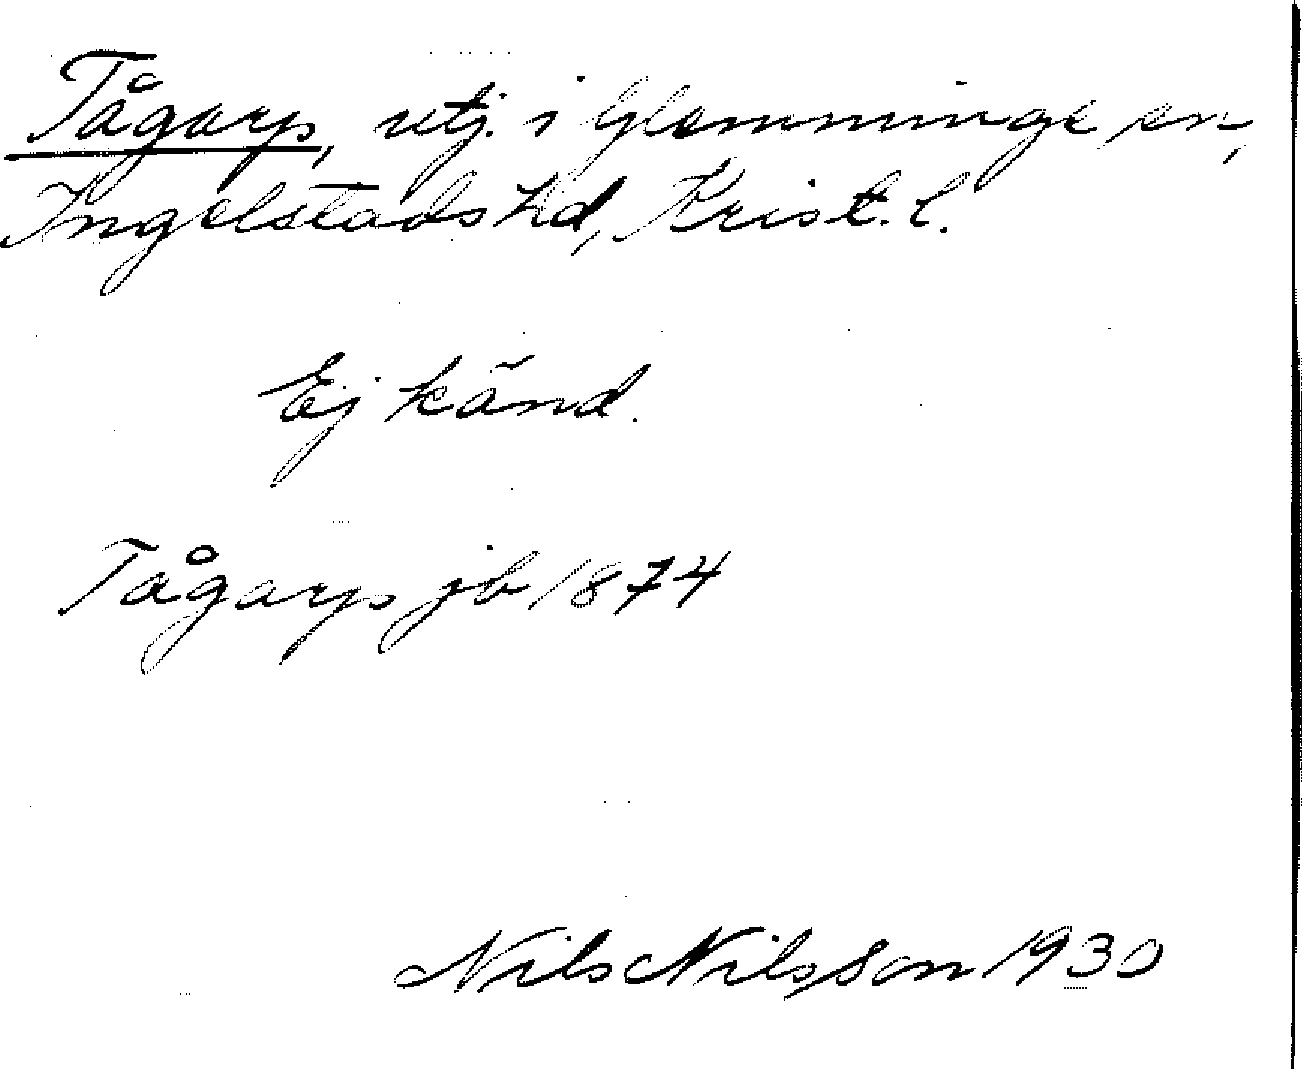 Tågarp, utj. i Glemminge sn,
Ingelstads hd, Krist. l.
Ej känd.
Tågarp jb 1874
Nils Nilsson 1930